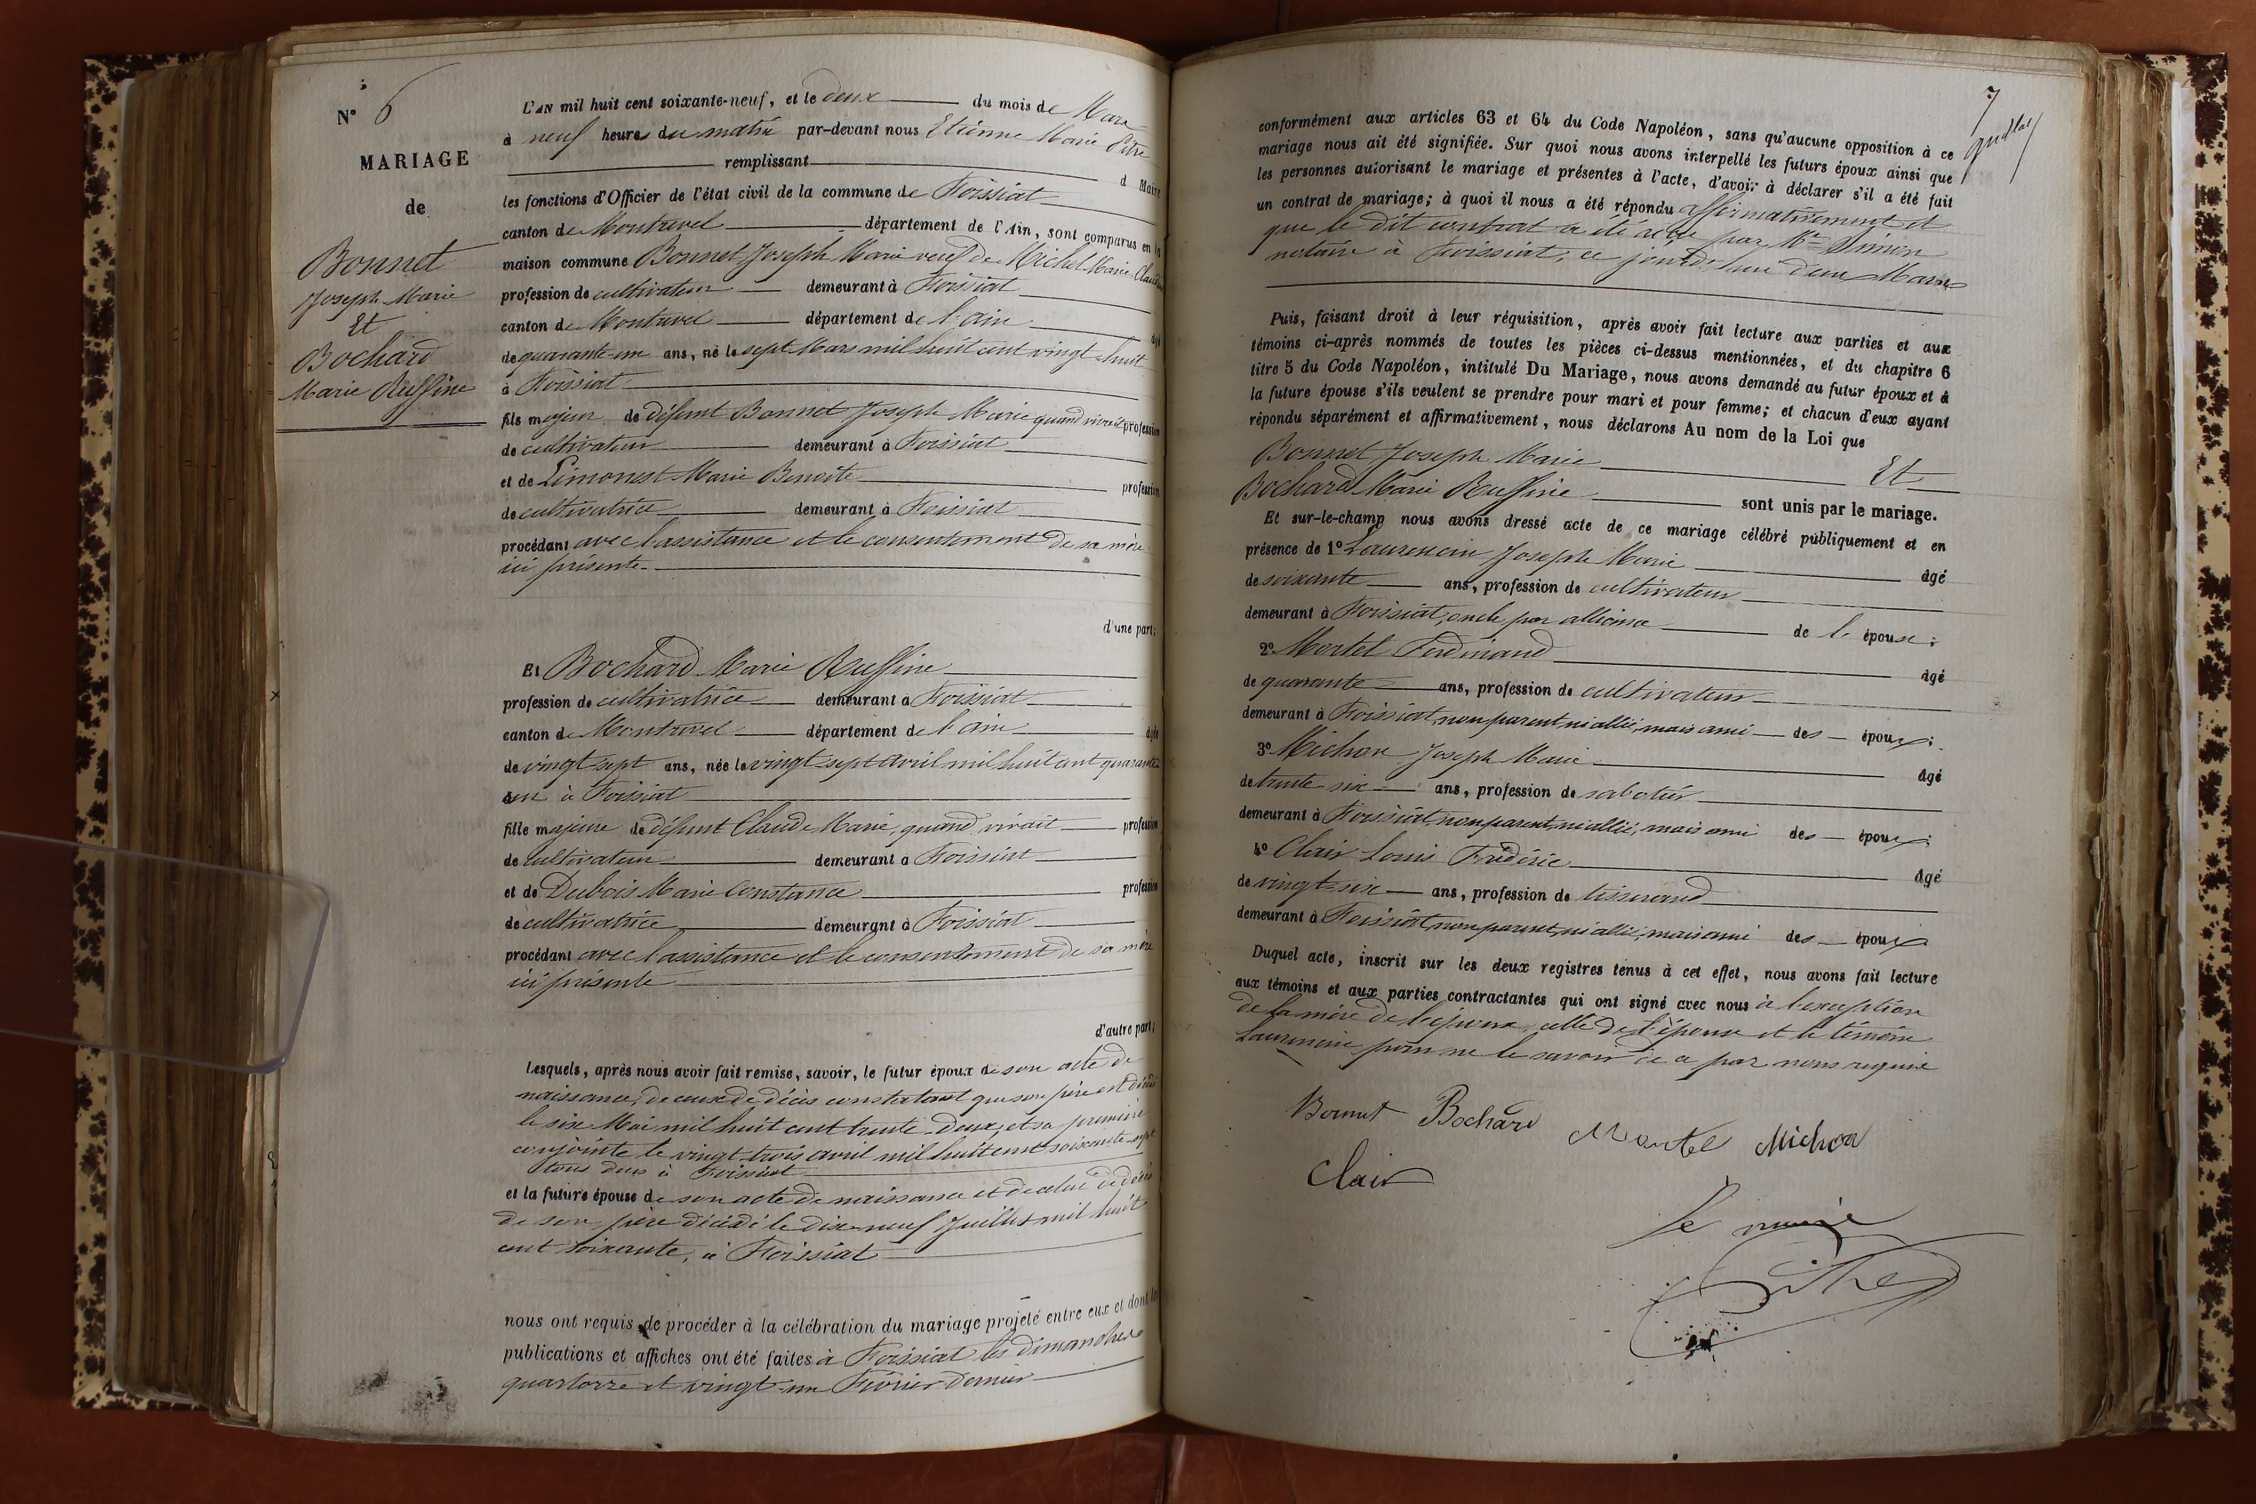 N° 6
MARIAGE
de
Bonnet
Joseph Marie
Et
Bochard
Marie Ruffine
L'AN mil huit cent soixante-neuf, et le deux du mois de Mars
à neuf heures du matin par-devant nous Etienne Marie Pitre
remplissant d Maire
les fonctions d'Officier de l'état civil de la commune de Foissiat
canton de Montrevel département de l'Ain, sont comparus en la
maison commune Bonnet Joseph Marie veuf de Michel Marie Claudine
profession de cultivateur demeurant à Foissiat
canton de Montrevel département de l'ain âgé
de quarante-un ans, né le sept Mars mil huit cent vingt-huit
à Foissiat
fils majeur de défunt Bonnet Joseph Marie quand vivait profession
de cultivateur demeurant à Foissiat
et de Limonest Marie Benoite profession
de cultivatrice demeurant à Foissiat
procédant avec l'assistance et le consentement de sa mère
ici présente
d'une part;
Et Bochard Marie Ruffine
profession de cultivatrice demeurant à Foissiat
canton de Montrevel département de l'ain âgée
de vingt sept ans, née le vingt sept avril mil huit cent quarante
un à Foissiat
fille majeure de défunt Claude Marie, quand vivait profession
de cultivateur demeurant à Foissiat
et de Dubois Marie Constance profession
de cultivatrice demeurant à Foissiat
procédant avec l'assistance et le consentement de sa mère
ici présente
d'autre part;
Lesquels, après nous avoir fait remise, savoir, le futur époux de son acte de
naissance, de ceux de décès constatant que son père est décédé
le six Mai mil huit cent trente-deux, et sa première
conjointe le vingt trois avril mil huit cent soixante-sept
tous deux à Foissiat
et la future épouse de son acte de naissance et de celui de décès
de son père décédé le dix-neuf Juillet mil huit
cent soixante, à Foissiat
nous ont requis de procéder à la célébration du mariage projeté entre eux et dont les
publications et affiches ont été faites à Foissiat les dimanches
quatorze et vingt-un Février dernier
7
conformément aux articles 63 et 64 du Code Napoléon, sans qu'aucune opposition à ce
mariage nous ait été signifiée. Sur quoi nous avons interpellé les futurs époux ainsi que
les personnes autorisant le mariage et présentes à l'acte, d'avoir à déclarer s'il a été fait
un contrat de mariage; à quoi il nous a été répondu affirmativement et
que le dit contrat a été reçu par Me Simon
notaire à Foissiat, ce jourd'hui deux Mars
Puis, faisant droit à leur réquisition, après avoir fait lecture aux parties et aux
témoins ci-après nommés de toutes les pièces ci-dessus mentionnées, et du chapitre 6
titre 5 du Code Napoléon, intitulé Du Mariage, nous avons demandé au futur époux et à
la future épouse s'ils veulent se prendre pour mari et pour femme; et chacun d'eux ayant
répondu séparément et affirmativement, nous déclarons Au nom de la Loi que
Bonnet Joseph Marie Et
Bochard Marie Ruffine sont unis par le mariage.
Et sur-le-champ nous avons dressé acte de ce mariage célébré publiquement et en
présence de 1° Laurencin Joseph Marie âgé
de soixante ans, profession de cultivateur
demeurant à Foissiat, oncle par alliance de l' épouse;
2° Martel Ferdinand âgé
de quarante ans, profession de cultivateur
demeurant à Foissiat, non parent, ni allié, mais ami des époux;
3° Michon Joseph Marie âgé
de trente six ans, profession de sabotier
demeurant à Foissiat, non parent, ni allié, mais ami des époux;
4° Clair Louis Frédéric âgé
de vingt-six ans, profession de tisserand
demeurant à Foissiat, non parent, ni allié, mais ami des époux
Duquel acte, inscrit sur les deux registres tenus à cet effet, nous avons fait lecture
aux témoins et aux parties contractantes qui ont signé avec nous à l'exception
de la mère de l'époux, celle de l'épouse et le témoin
Laurencin pour ne le savoir de ce par nous requis
Bonnet Bochard Martel Michon
Clair
Le maire
Pitre